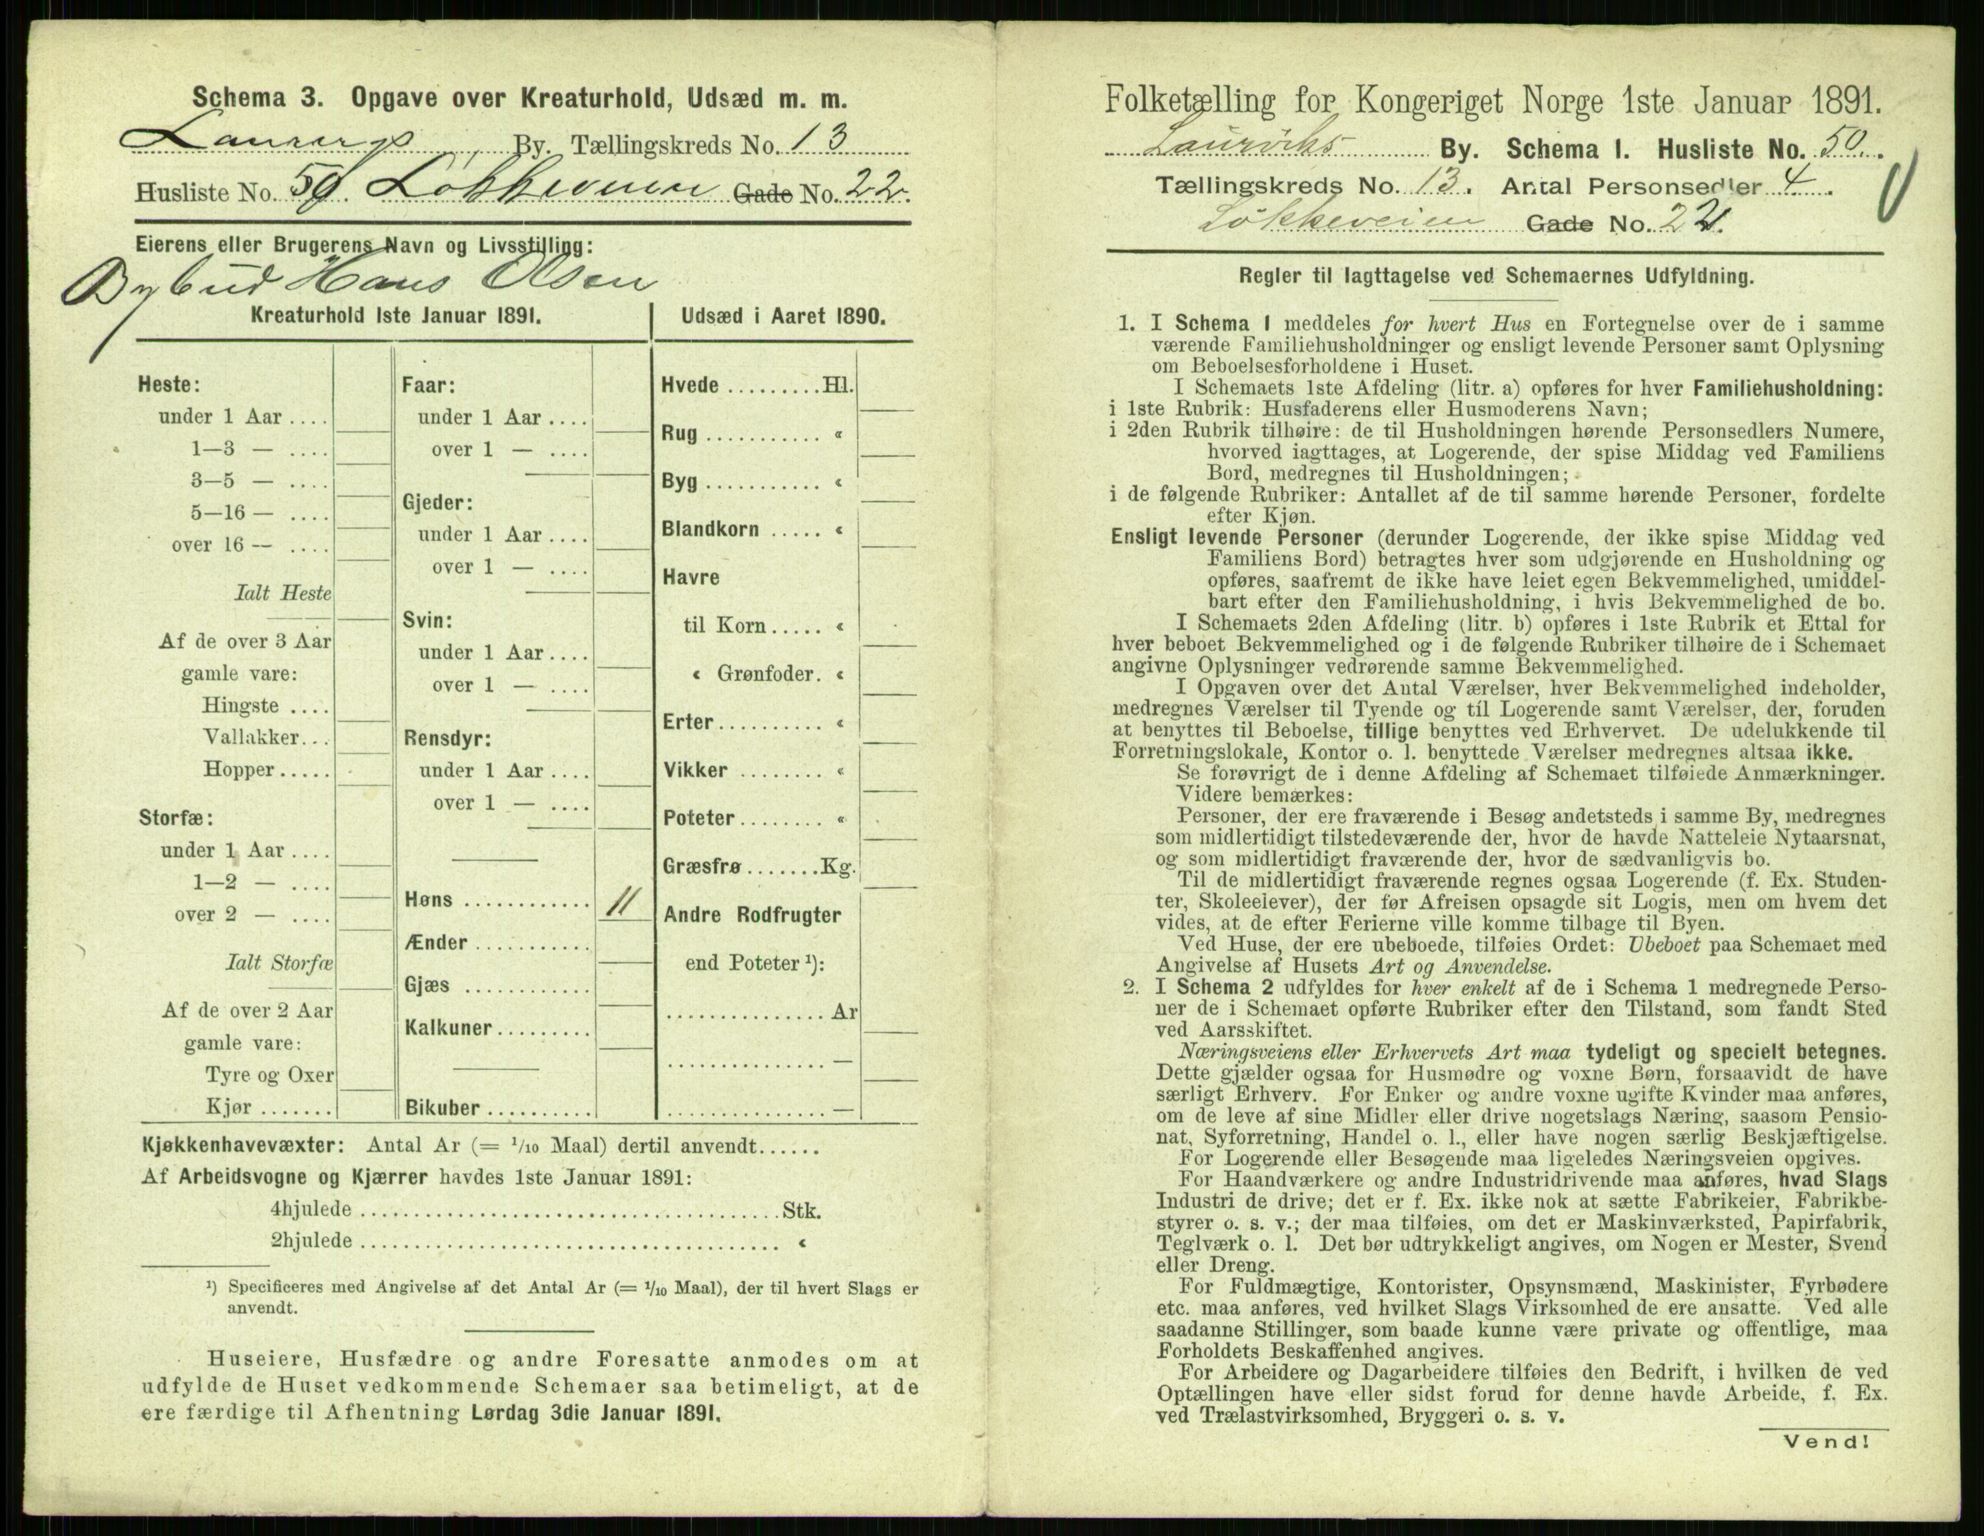 Schema 3. Opgave over Kreaturhold, Udsæd m. m.
Laurvigs By. Tællingskreds No. 13
Husliste No. 50. Løkkeveien Gade No. 22.
Eierens eller Brugerens Navn og Livsstilling:
Bybud Hans Olsen
Kreaturhold 1ste Januar 1891.
Heste:
under 1 Aar ....
1—3 — ....
3—5 — ....
5—16 — ....
over 16 — ....
Ialt Heste
Af de over 3 Aar
gamle vare:
Hingste ....
Vallakker...
Hopper.....
Storfæ:
under 1 Aar ....
1—2 — ....
over 2 — ....
Ialt Storfæ
Af de over 2 Aar
gamle vare:
Tyre og Oxer
Kjør.......
Faar:
under 1 Aar ....
over 1 — ....
Gjeder:
under 1 Aar ....
over 1 — ....
Svin:
under 1 Aar ....
over 1 — ....
Rensdyr:
under 1 Aar ....
over 1 — ....
Høns ............ 11
Ænder ...........
Gjæs ............
Kalkuner.........
Bikuber..........
Udsæd i Aaret 1890.
Hvede .........Hl.
Rug ........... «
Byg ........... «
Blandkorn ..... «
Havre
til Korn..... «
« Grønfoder. «
Erter.......... «
Vikker ........ «
Poteter........ «
Græsfrø.......Kg.
Andre Rodfrugter
end Poteter ¹):
............... Ar
............... —
............... —
Kjøkkenhavevæxter: Antal Ar (= 1/10 Maal) dertil anvendt......
Af Arbeidsvogne og Kjærrer havdes 1ste Januar 1891:
4hjulede ...................................... Stk.
2hjulede ...................................... «
¹) Specificeres med Angivelse af det Antal Ar (= 1/10 Maal), der til hvert Slags er
anvendt.
Huseiere, Husfædre og andre Foresatte anmodes om at
udfylde de Huset vedkommende Schemaer saa betimeligt, at de
ere færdige til Afhentning Lørdag 3die Januar 1891.
Folketælling for Kongeriget Norge 1ste Januar 1891.
Laurviks By. Schema 1. Husliste No. 50.
Tællingskreds No. 13. Antal Personsedler 4.
Løkkeveien Gade No. 22.
Regler til Iagttagelse ved Schemaernes Udfyldning.
1. I Schema 1 meddeles for hvert Hus en Fortegnelse over de i samme
værende Familiehusholdninger og ensligt levende Personer samt Oplysning
om Beboelsesforholdene i Huset.
I Schemaets 1ste Afdeling (litr. a) opføres for hver Familiehusholdning:
i 1ste Rubrik: Husfaderens eller Husmoderens Navn;
i 2den Rubrik tilhøire: de til Husholdningen hørende Personsedlers Numere,
hvorved iagttages, at Logerende, der spise Middag ved Familiens
Bord, medregnes til Husholdningen;
i de følgende Rubriker: Antallet af de til samme hørende Personer, fordelte
efter Kjøn.
Ensligt levende Personer (derunder Logerende, der ikke spise Middag ved
Familiens Bord) betragtes hver som udgjørende en Husholdning og
opføres, saafremt de ikke have leiet egen Bekvemmelighed, umiddel-
bart efter den Familiehusholdning, i hvis Bekvemmelighed de bo.
I Schemaets 2den Afdeling (litr. b) opføres i 1ste Rubrik et Ettal for
hver beboet Bekvemmelighed og i de følgende Rubriker tilhøire de i Schemaet
angivne Oplysninger vedrørende samme Bekvemmelighed.
I Opgaven over det Antal Værelser, hver Bekvemmelighed indeholder,
medregnes Værelser til Tyende og til Logerende samt Værelser, der, foruden
at benyttes til Beboelse, tillige benyttes ved Erhvervet. De udelukkende til
Forretningslokale, Kontor o. l. benyttede Værelser medregnes altsaa ikke.
Se forøvrigt de i denne Afdeling af Schemaet tilføiede Anmærkninger.
Videre bemærkes:
Personer, der ere fraværende i Besøg andetsteds i samme By, medregnes
som midlertidigt tilstedeværende der, hvor de havde Natteleie Nytaarsnat,
og som midlertidigt fraværende der, hvor de sædvanligvis bo.
Til de midlertidigt fraværende regnes ogsaa Logerende (f. Ex. Studen-
ter, Skoleelever), der før Afreisen opsagde sit Logis, men om hvem det
vides, at de efter Ferierne ville komme tilbage til Byen.
Ved Huse, der ere ubeboede, tilføies Ordet: Ubeboet paa Schemaet med
Angivelse af Husets Art og Anvendelse.
2. I Schema 2 udfyldes for hver enkelt af de i Schema 1 medregnede Perso-
ner de i Schemaet opførte Rubriker efter den Tilstand, som fandt Sted
ved Aarsskiftet.
Næringsveiens eller Erhvervets Art maa tydeligt og specielt betegnes.
Dette gjælder ogsaa for Husmødre og voxne Børn, forsaavidt de have
særligt Erhverv. For Enker og andre voxne ugifte Kvinder maa anføres,
om de leve af sine Midler eller drive nogetslags Næring, saasom Pensio-
nat, Syforretning, Handel o. l., eller have nogen særlig Beskjæftigelse.
For Logerende eller Besøgende maa ligeledes Næringsveien opgives.
For Haandværkere og andre Industridrivende maa anføres, hvad Slags
Industri de drive; det er f. Ex. ikke nok at sætte Fabrikeier, Fabrikbe-
styrer o. s. v.; der maa tilføies, om det er Maskinværksted, Papirfabrik,
Teglværk o. l. Det bør udtrykkeligt angives, om Nogen er Mester, Svend
eller Dreng.
For Fuldmægtige, Kontorister, Opsynsmænd, Maskinister, Fyrbødere
etc. maa anføres, ved hvilket Slags Virksomhed de ere ansatte. Ved alle
saadanne Stillinger, som baade kunne være private og offentlige, maa
Forholdets Beskaffenhed angives.
For Arbeidere og Dagarbeidere tilføies den Bedrift, i hvilken de ved
Optællingen have eller sidst forud for denne havde Arbeide, f. Ex.
ved Trælastvirksomhed, Bryggeri o. s. v.
Vend!